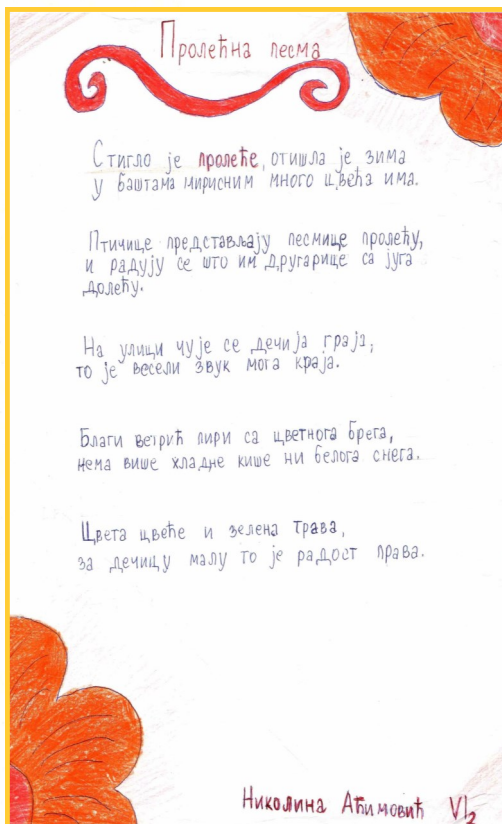 Пролећна песма
Стигло је пролеће, отишла је зима
у баштама мирисним много цвећа има.
Птичице представљају песмице пролећу,
и радују се што им другарице са југа
долећу.
На улици чује се дечија граја,
то је весели звук мога краја.
Благи ветрић пири са цветнога брега,
нема више хладне кише ни белога снега.
Цвета цвеће и зелена трава,
за дечицу малу то је радост права.
Николина Аћимовић VI2